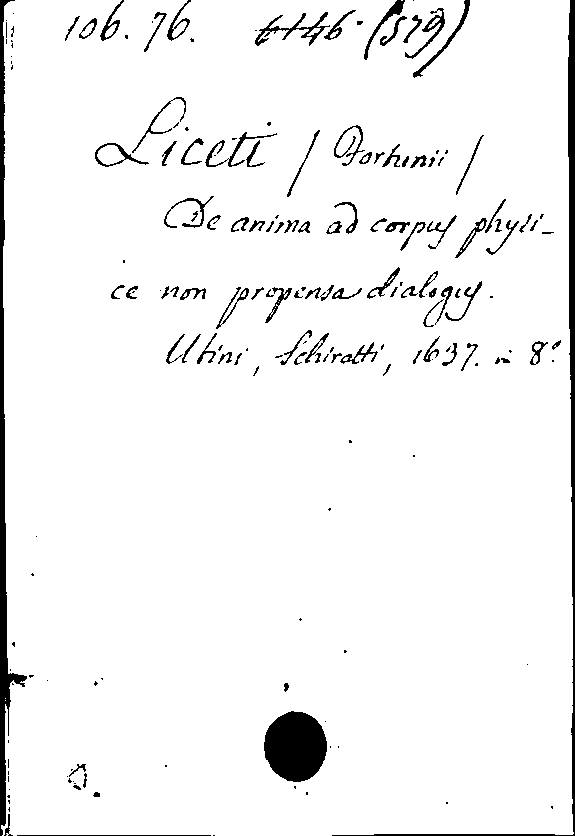 106. 76. 6146. (579)
Liceti / Fortunii /
De anima ad corpus physi-
ce non propensa dialogus.
Utini, Schiratti, 1637. in 8.º